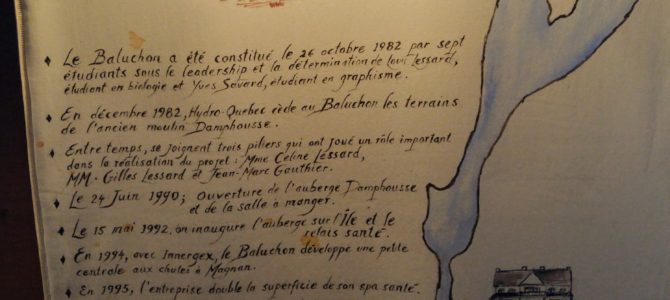 ♦ Le Baluchon a été constitué le 26 octobre 1982 par sept
étudiants sous le leadership et la détermination de Louis Lessard,
étudiant en biologie et Yves Savard, étudiant en graphisme.
♦ En décembre 1982, Hydro-Quebec cède au Baluchon les terrains
de l'ancien moulin Damphousse.
♦ Entre temps, se joignent trois piliers qui ont joué un rôle important
dans la réalisation du projet: Mme Céline Lessard,
MM. Gilles Lessard et Jean-Marc Gauthier.
♦ Le 24 Juin 1990; Ouverture de l'auberge Damphousse
et de la salle à manger.
♦ Le 15 mai 1992, on inaugure l'auberge sur l'Île et le
relais santé.
♦ En 1994, avec Innergex, le Baluchon développe une petite
centrale aux chutes à Magnan.
♦ En 1995, l'entreprise double la superficie de son spa santé.